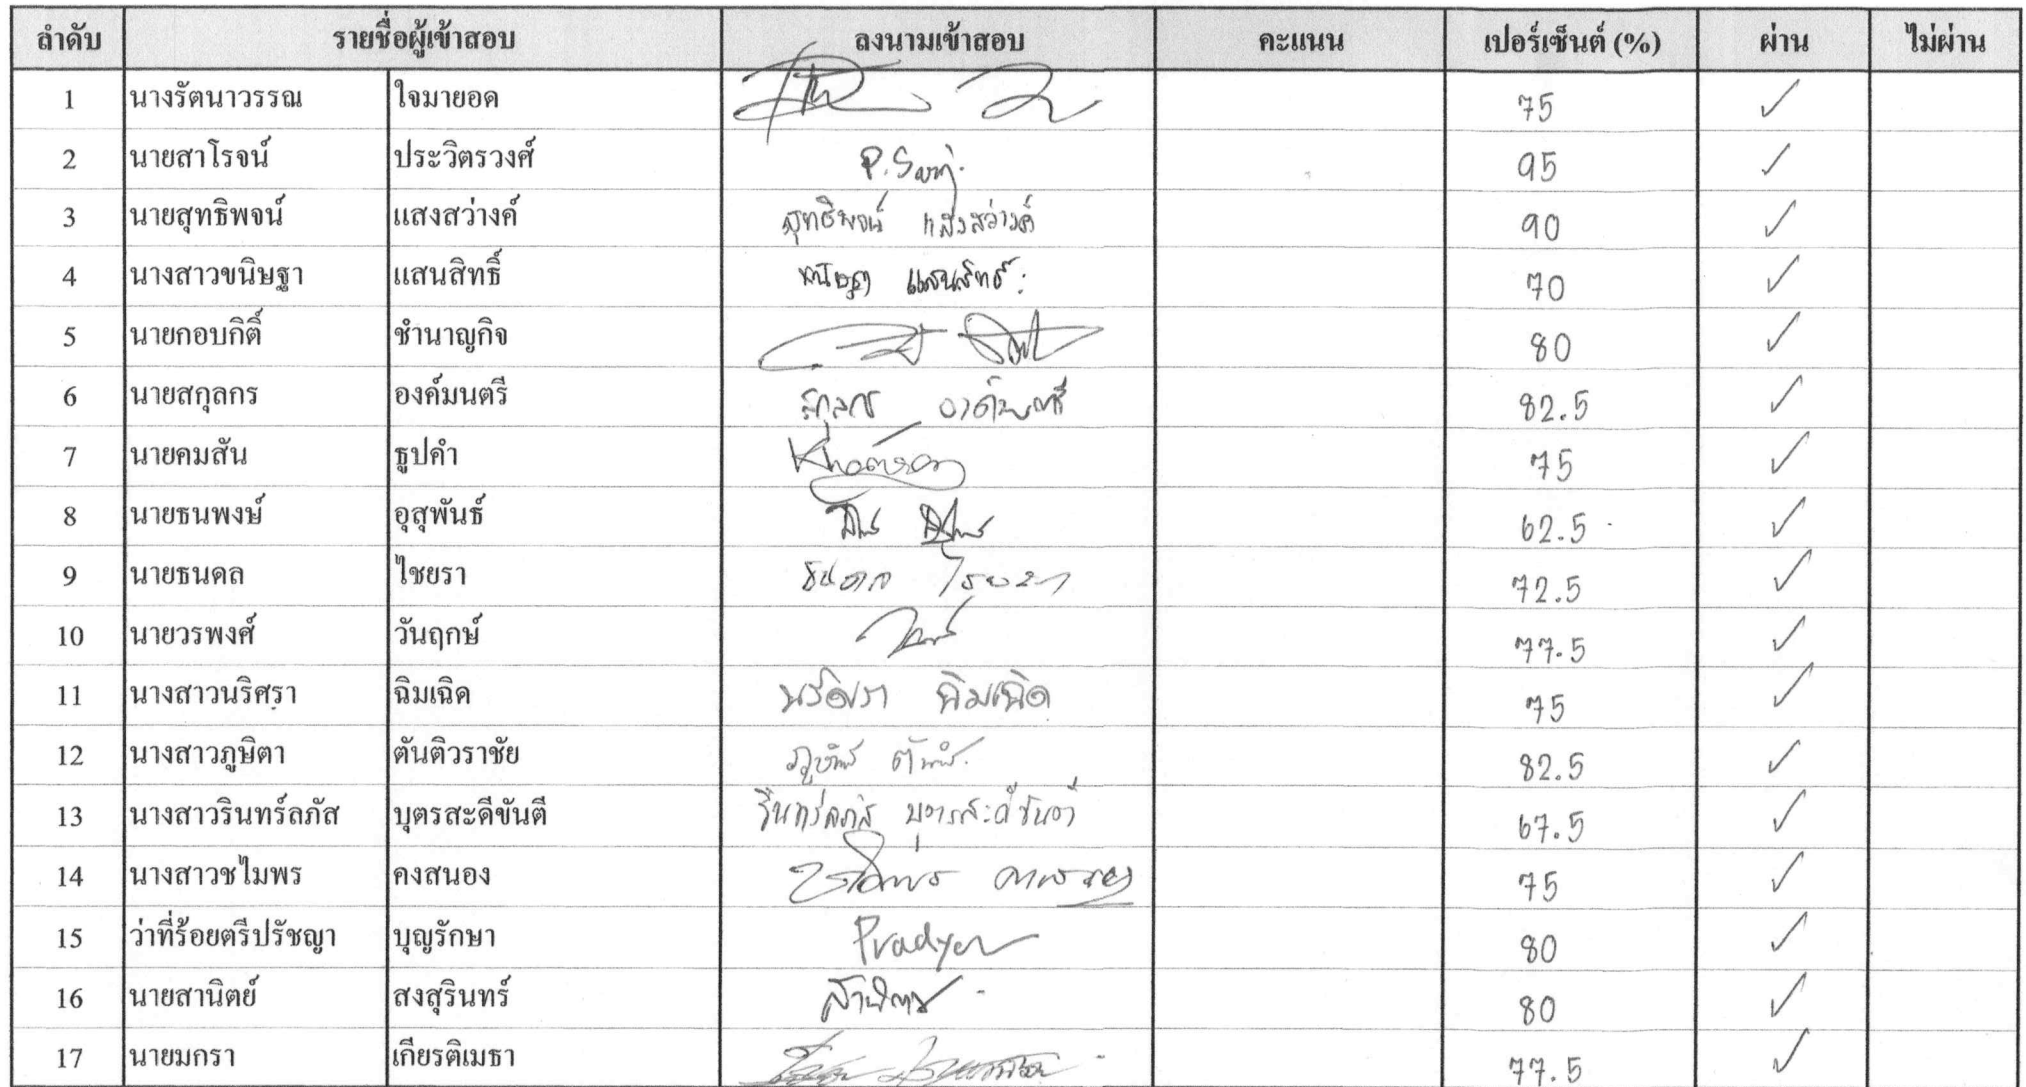 ลำดับ รายชื่อผู้เข้าสอบ ลงนามเข้าสอบ คะแนน เปอร์เซ็นต์ (%) ผ่าน ไม่ผ่าน
1 นางรัตนาวรรณ ใจมายอด 75 ✓
2 นายสาโรจน์ ประวิตรวงศ์ 95 ✓
3 นายสุทธิพจน์ แสงสว่างค์ สุทธิพจน์ แสงสว่างค์ 90 ✓
4 นางสาวขนิษฐา แสนสิทธิ์ ขนิษฐา แสนสิทธิ์ 70 ✓
5 นายกอบกิติ์ ชำนาญกิจ 80 ✓
6 นายสกุลกร องค์มนตรี 82.5 ✓
7 นายคมสัน ธูปคำ 75 ✓
8 นายธนพงษ์ อุสุพันธ์ 62.5 ✓
9 นายธนดล ไชยรา ธนดล ไชยรา 72.5 ✓
10 นายวรพงศ์ วันฤกษ์ 77.5 ✓
11 นางสาวนริศรา ฉิมเฉิด นริศรา ฉิมเฉิด 75 ✓
12 นางสาวภูษิตา ตันติวราชัย 82.5 ✓
13 นางสาวรินทร์ลภัส บุตรสะดีขันตี รินทร์ลภัส บุตรสะดีขันตี 67.5 ✓
14 นางสาวชไมพร คงสนอง 75 ✓
15 ว่าที่ร้อยตรีปรัชญา บุญรักษา 80 ✓
16 นายสานิตย์ สงสุรินทร์ 80 ✓
17 นายมกรา เกียรติเมธา 77.5 ✓